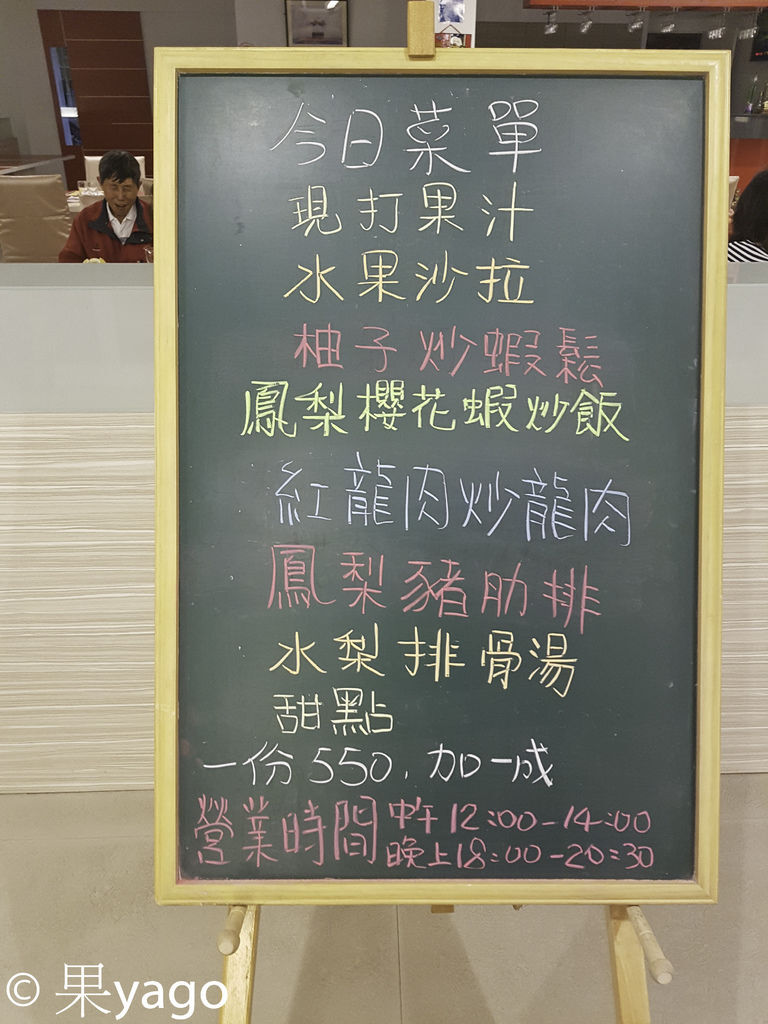 今日菜單
現打果汁
水果沙拉
柚子炒蝦鬆
鳳梨櫻花蝦炒飯
紅龍肉炒龍肉
鳳梨豬肋排
水梨排骨湯
甜點
一份550，加一成
營業時間 中午12:00-14:00
晚上18:00-20:30
© 果yago